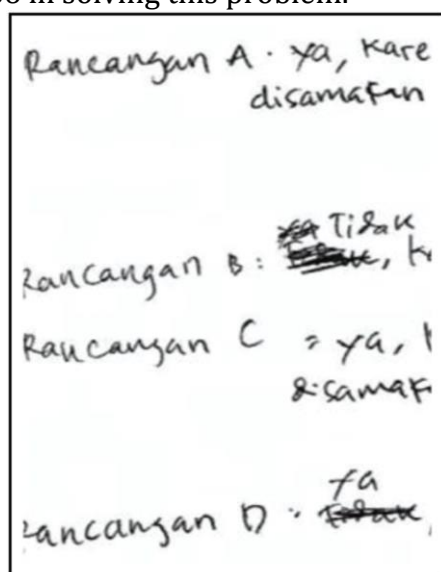 in solving this problem.
Rancangan A . ya, kare
disamakan
Tidak
Rancangan B :
Rancangan C = ya,
disamak
ya
Rancangan D :